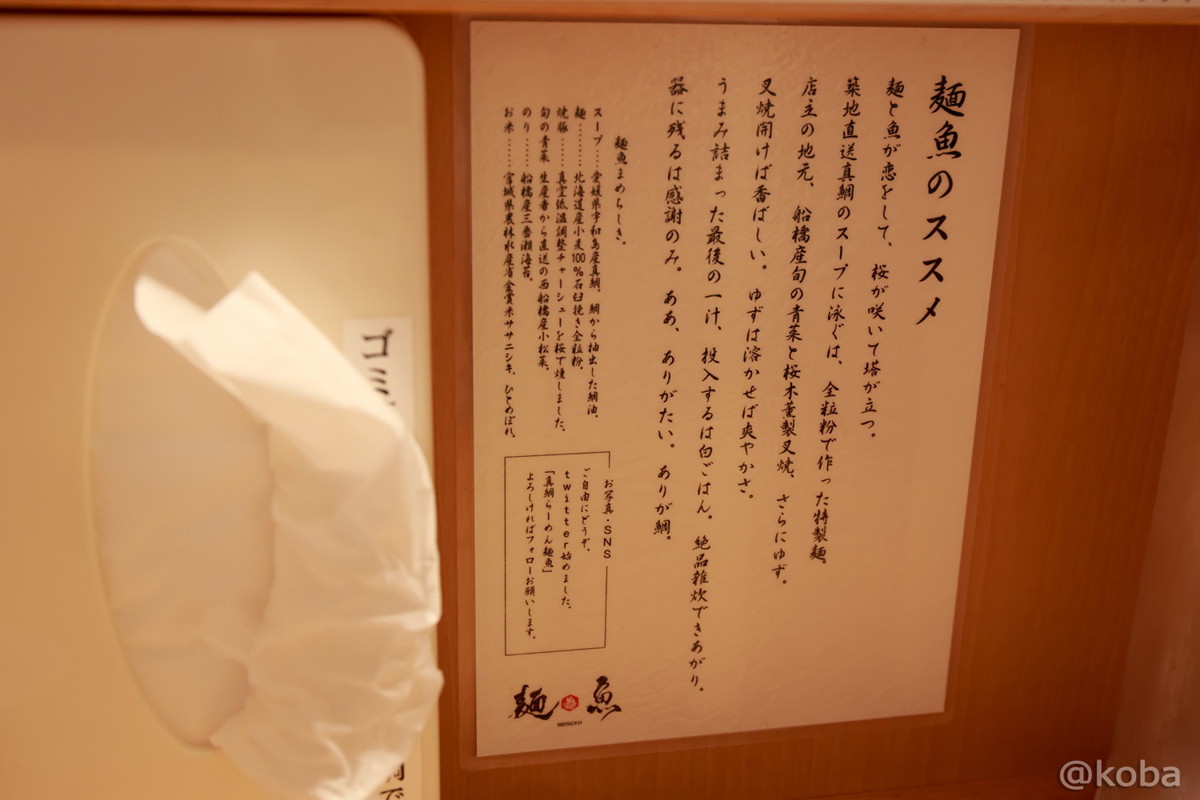 麺魚のススメ
麺と魚が恋をして、桜が咲いて塔が立つ。
築地直送真鯛のスープに泳ぐは、全粒粉で作った特製麺。
店主の地元、船橋産旬の青菜と桜木薫製叉焼、さらにゆず。
叉焼開けば香ばしい。ゆずは溶かせば爽やかさ。
うまみ詰まった最後の一汁、投入するは白ごはん。絶品雑炊できあがり。
器に残るは感謝のみ。ああ、ありがたい。ありが鯛。
麺魚まめちしき。
スープ…愛媛県宇和島産真鯛。鯛から抽出した鯛油。
麺………北海道産小麦100%石臼挽き全粒粉。
焼豚……真空低温調整チャーシューを桜で燻しました。
旬の青菜 生産者から直送の西船橋産小松菜。
のり……船橋産三番瀬海苔。
お米……宮城県農林水産省金賞米ササニシキ、ひとめぼれ。
お写真・SNS
ご自由にどうぞ。
twitter始めました。
「真鯛らーめん麺魚」
よろしければフォローお願いします。
麺 魚
MENGYO
ゴミ
で
@koba